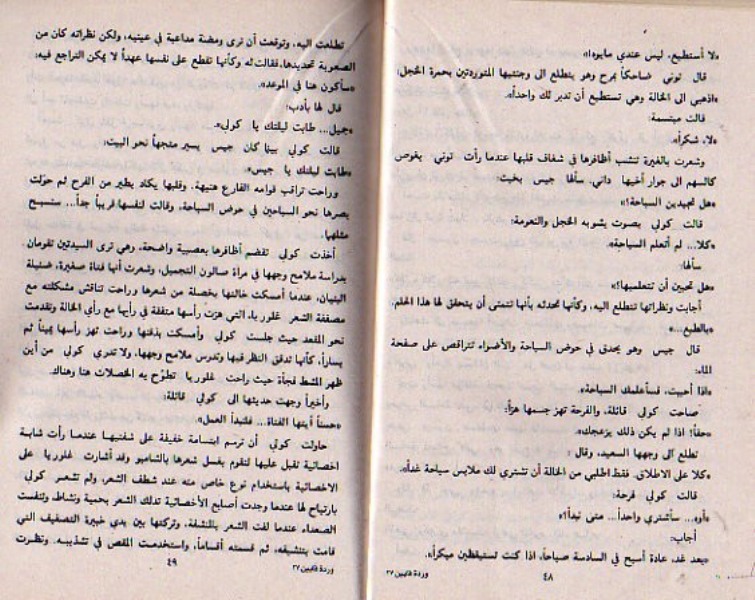 «لا أستطيع، ليس عندي مايوه!»
قال توني ضاحكاً بمرح وهو يتطلع الى وجنتيها المتوردتين بحمرة الخجل:
«اذهبي الى الخالة وهي تستطيع أن تدبر لك واحداً».
قالت مبتسمة:
«لا، شكراً».
وشعرت بالغيرة تنشب أظافرها في شغاف قلبها عندما رأت توني يغوص
كالسهم الى جوار أخيها داني، سألها جيس بخبث:
«هل تجيدين السباحة؟!»
قالت كولي بصوت يشوبه الخجل والنعومة:
«كلا... لم أتعلم السباحة».
سألها:
«هل تحبين أن تتعلميها؟»
أجابت ونظراتها تتطلع اليه، وكأنها تحدثه بأنها تتمنى أن يتحقق لها هذا الحلم.
«بالطبع..»
قال جيس وهو يحدق في حوض السباحة والأضواء تتراقص على صفحة
الماء:
«اذا أحببت، فسأعلمك السباحة».
صاحت كولي قائلة، والفرحة تهز جسمها هزاً:
«حقاً! اذا لم يكن ذلك يزعجك».
تطلع الى وجهها السعيد، وقال:
«كلا على الاطلاق. فقط اطلبي من الخالة أن تشتري لك ملابس سباحة غداً».
قالت كولي فرحة:
«أوه... سأشتري واحداً... متى نبدأ؟»
أجاب:
«بعد غد، عادة أسبح في السادسة صباحاً، اذا كنت تستيقظين مبكراً».
٤٨
وردة قايين ٢٧
تطلعت اليه، وتوقعت أن ترى ومضة مداعبة في عينيه، ولكن نظراته كان من
الصعوبة تحديدها، فقالت له وكأنها تقطع على نفسها عهداً لا يمكن التراجع فيه:
«سأكون هنا في الموعد».
قال لها بأدب:
«جميل... طابت ليلتك يا كولي».
قالت كولي بينما كان جيس يسير متجهاً نحو البيت:
«طابت ليلتك يا جيس».
وراحت تراقب قوامه الفارع هنيهة. وقلبها يكاد يطير من الفرح ثم حوّلت
بصرها نحو السباحين في حوض السباحة، وقالت لنفسها قريباً جداً... ستسبح
مثلها.
أخذت كولي تقضم أظافرها بعصبية واضحة، وهي ترى السيدتين تقومان
بدراسة ملامح وجهها في مرآة صالون التجميل، وشعرت أنها فتاة صغيرة، ضئيلة
البنيان، عندما أمسكت خالتها بخصلة من شعرها وراحت تناقش مشكلته مع
مصففة الشعر غلوريا، التي هزت رأسها متفقة في رأيها مع رأي الخالة وتقدمت
نحو المقعد حيث جلست كولي وأمسكت بذقنها وراحت تهز رأسها يميناً ثم
يساراً، كأنها تدقق النظر فيها وتدرس ملامح وجهها، ولا تدري كولي من أين
ظهر المشط فجأة حيث راحت غلوريا تطوّح به الخصلات هنا وهناك.
وأخيراً وجهت حديثها الى كولي قائلة:
«حسناً أيتها الفتاة... فلنبدأ العمل».
حاولت كولي أن ترسم ابتسامة خفيفة على شفتيها عندما رأت شابة
اخصائية تقبل عليها لتقوم بغسل شعرها بالشامبو وقد أشارت غلوريا على
الاخصائية باستخدام نوع خاص منه عند شطف الشعر، ولم تشعر كولي
بارتياح لها عندما وجدت أصابع الأخصائية تدلك الشعر بحمية ونشاط، وتنفست
الصعداء عندما لفت الشعر بالمنشفة. وتركتها بين يدي خبيرة التصفيف التي
قامت بتنشيفه، ثم قسمته أقساماً، واستخدمت المقص في تشذيبه. ونظرت
٤٩
وردة قايين ٢٧